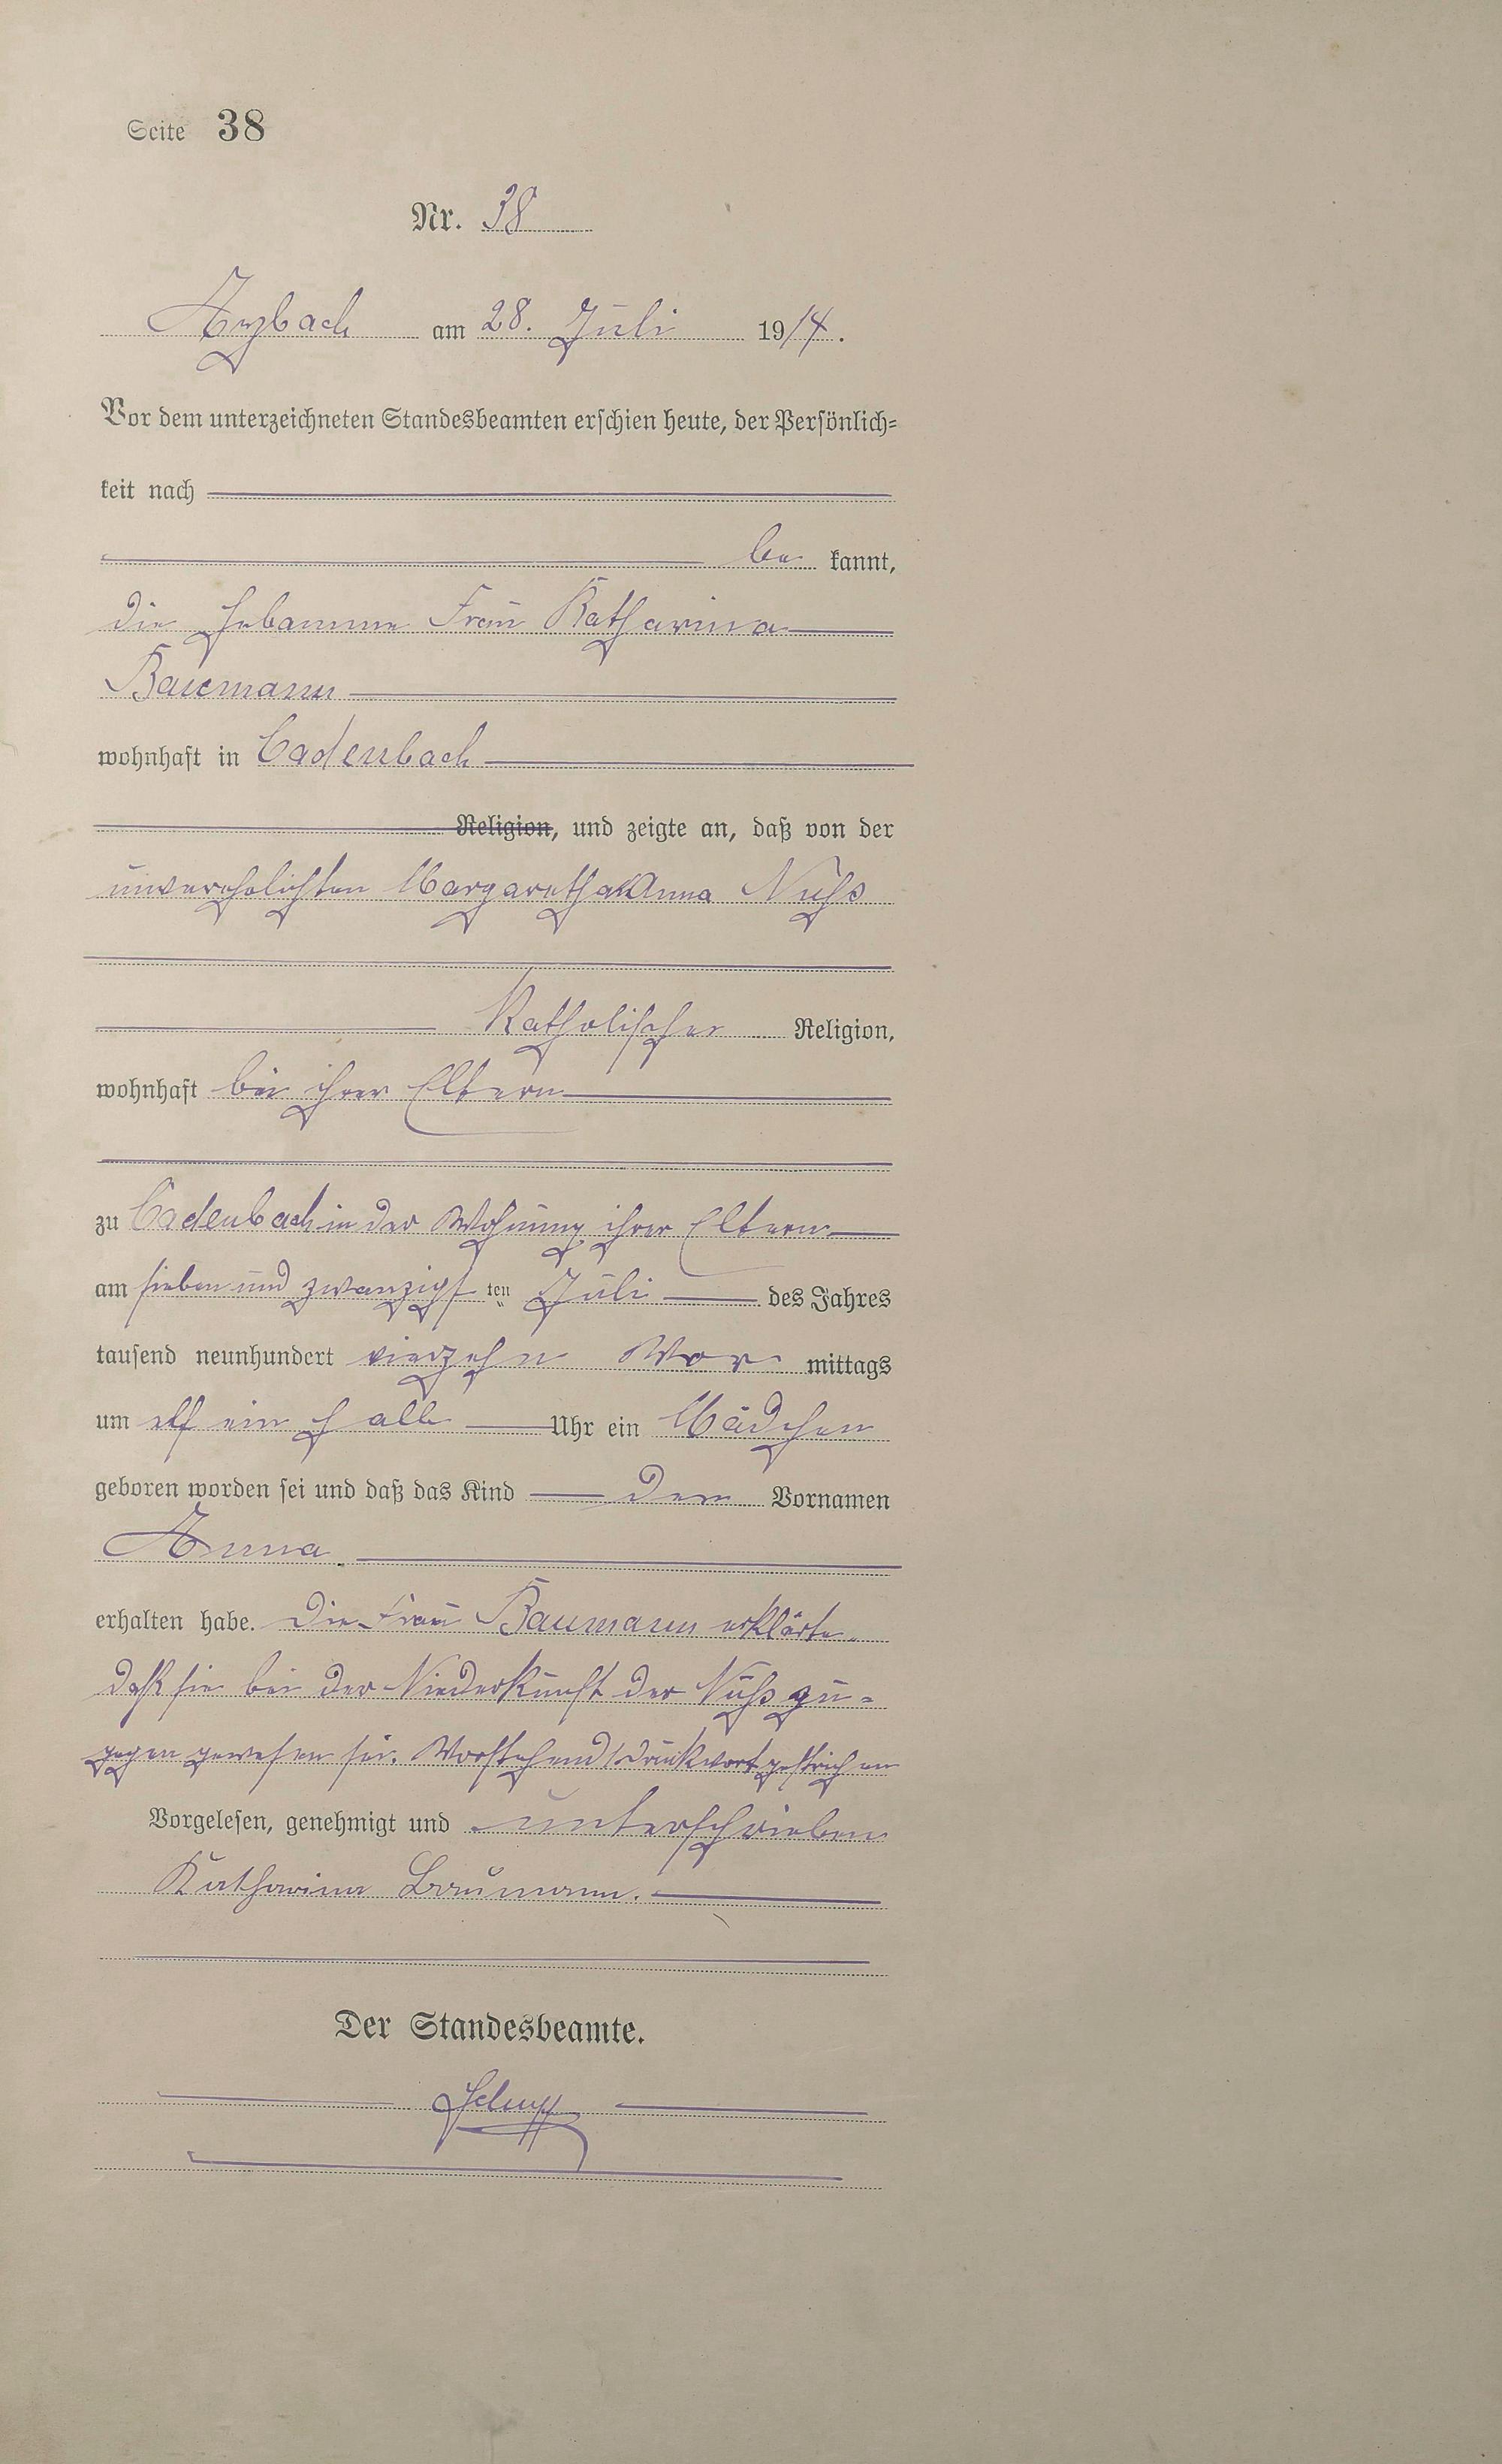 Seite 38
Nr. 38
Arzbach am 28. Juli 1914.
Vor dem unterzeichneten Standesbeamten erschien heute, der Persönlich-
keit nach
be kannt,
die Hebamme Frau Katharina
Baumann
wohnhaft in Cadenbach
Religion, und zeigte an, daß von der
unverehelichten Margaretha Anna Nuß
Katholischer Religion,
wohnhaft bei ihren Eltern
zu Cadenbach in der Wohnung ihrer Eltern
am sieben und zwanzigsten Juli des Jahres
tausend neunhundert vierzehn Vor mittags
um elf ein halb Uhr ein Mädchen
geboren worden sei und daß das Kind den Vornamen
Anna
erhalten habe. Die Frau Baumann erklärte
daß sie bei der Niederkunft der Nuß zu-
gegen gewesen sei. Vorstehend 1 Druckwort gestrichen
Vorgelesen, genehmigt und unterschrieben
Katharina Baumann.
Der Standesbeamte.